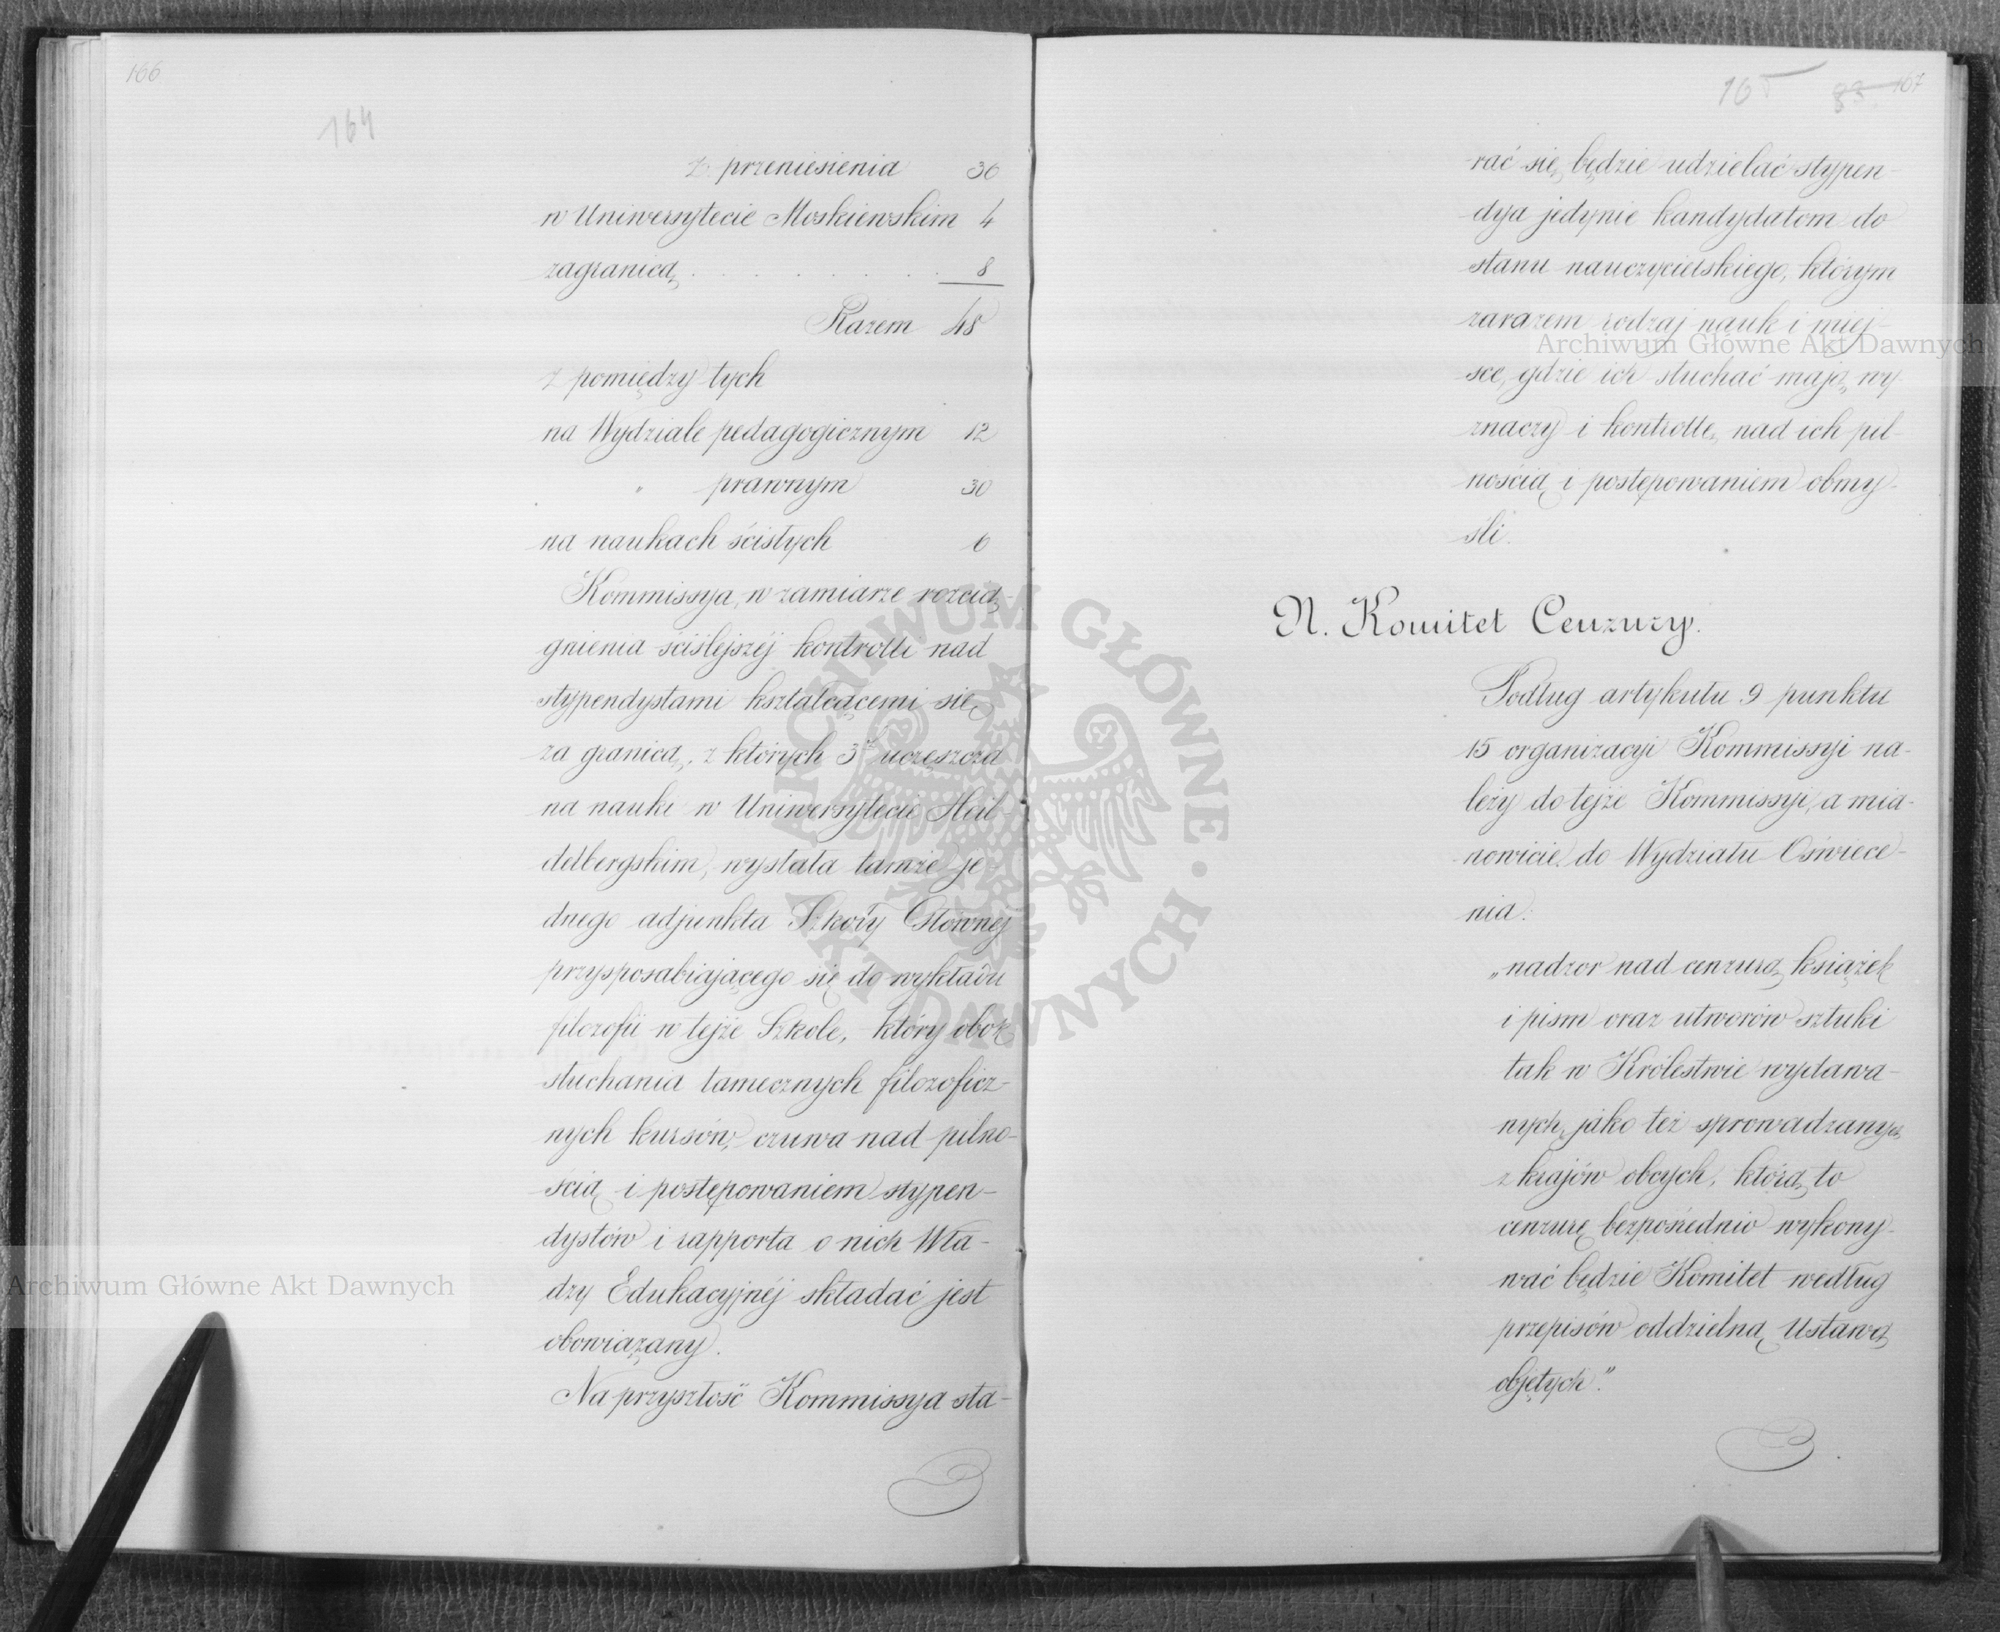 166
164
z przeniesienia 36
w Uniwersytecie Moskiewskim 4
zagranicą . . . . . . . 8
Razem 48
z pomiędzy tych
na Wydziale pedagogicznym 12
" prawnym 30
na naukach ścisłych 6
Kommissya, w zamiarze rozcią-
gnienia ściślejszéj kontrolli nad
stypendystami kształcącemi się
za granicą, z których 3ch uczęszcza
na nauki w Uniwersytecie Hei-
delbergskim, wysłała tamże je-
dnego adjunkta Szkoły Głównej
przysposabiającego się do wykładu
filozofii w tejże Szkole, który obok
słuchania tamecznych filozoficz-
nych kursów, czuwa nad pilno-
ścią i postępowaniem stypen-
dystów i rapporta o nich Wła-
dzy Edukacyjnéj składać jest
obowiązany.
Na przyszłość Kommissya sta-
165 83 167
rać się będzie udzielać stypen-
dya jedynie kandydatom do
stanu nauczycielskiego, którym
zarazem rodzaj nauk i miej-
sce, gdzie ich słuchać mają, wy-
znaczy i kontrollę nad ich pil-
nością i postępowaniem obmy-
śli.
N. Komitet Cenzury.
Podług artykułu 9 punktu
15 organizacyi Kommissyi na-
leży do tejże Kommissyi, a mia-
nowicie do Wydziału Oświece-
nia:
„nadzor nad cenzurą książek
i pism oraz utworów sztuki
tak w Królestwie wydawa-
nych, jako też sprowadzanych
z krajów obcych, którą to
cenzurę bezpośrednio wykony-
wać będzie Komitet według
przepisów oddzielną Ustawą
objętych."
Archiwum Główne Akt Dawnych
Archiwum Główne Akt Dawnych
ARCHIWUM GŁÓWNE · AKT DAWNYCH ·